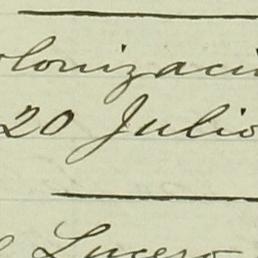 olonizaci
20 Julio
Lucero